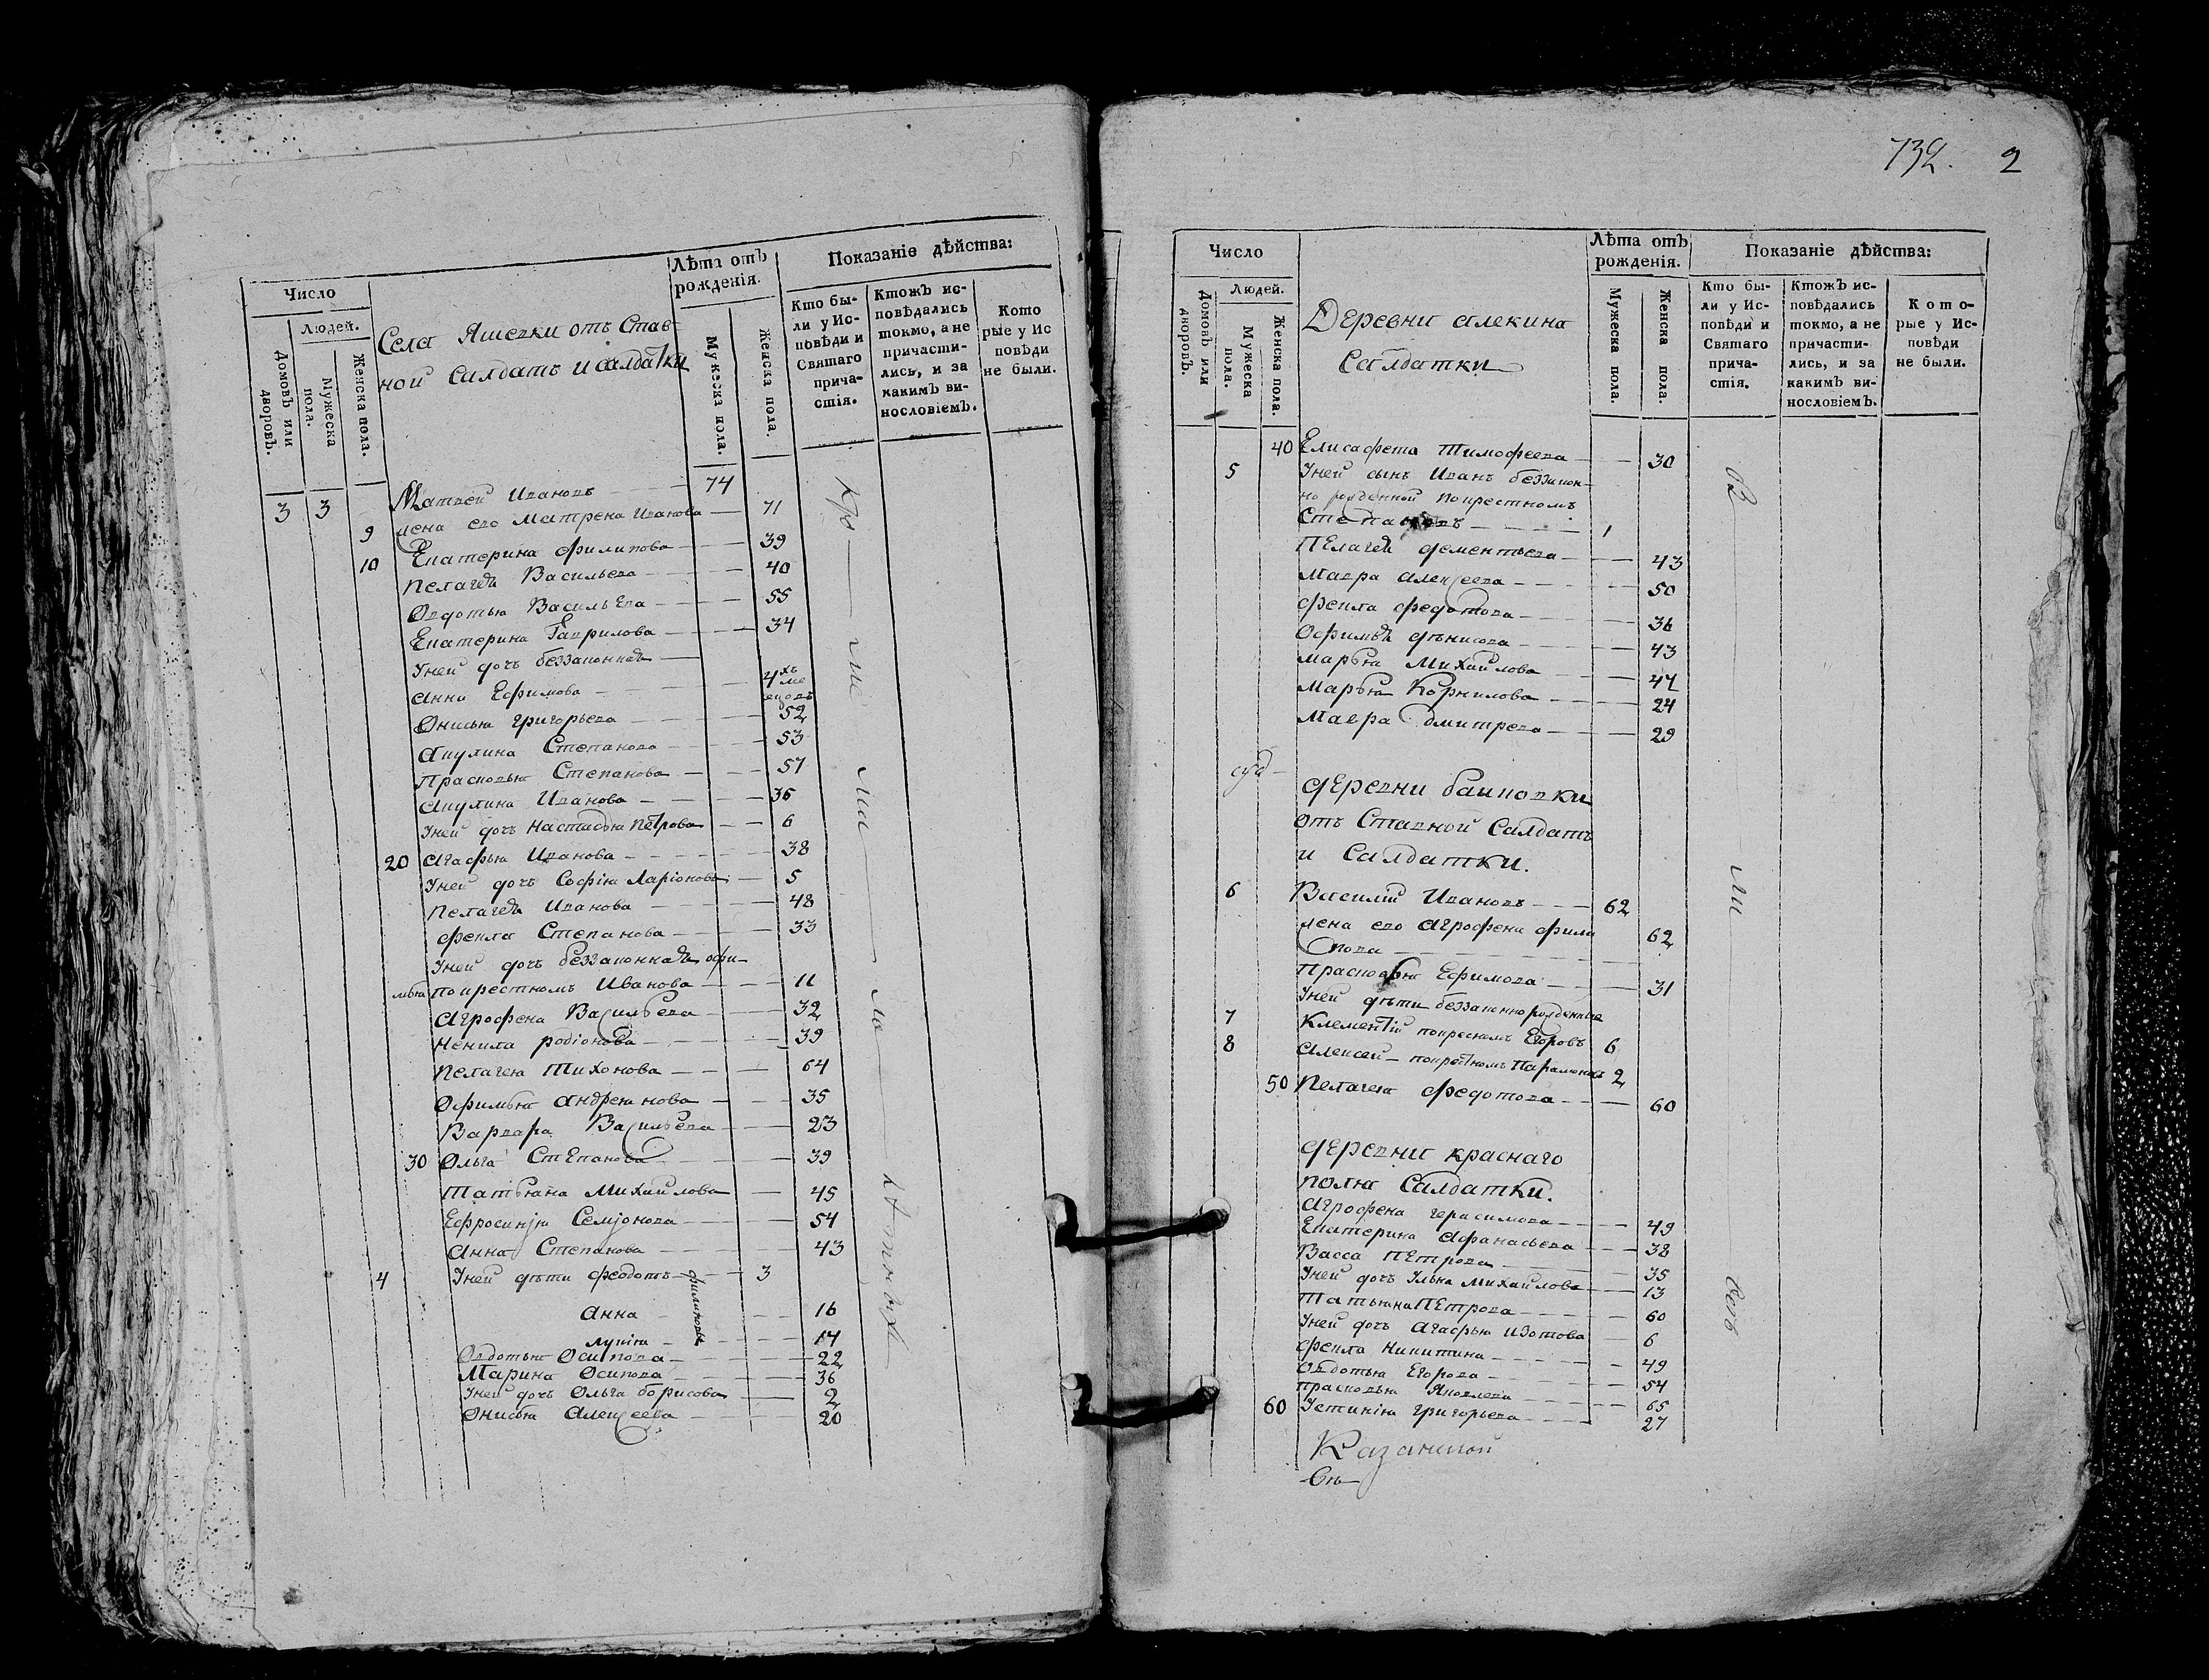 Число
Людей.
Домовъ или дворовъ.
Мужеска пола.
Женска пола.
Села Яшевки отъ Став-
ной салдатъ и салдатки
Лѣта отъ рожденія.
Мужеска пола.
Женска пола.
Показаніе дѣйства:
Кто бы-
ли у Ис-
повѣди и
Святаго
прича-
стія.
Ктожъ ис-
повѣдались
токмо, а не
причасти-
лись, и за
какимъ ви-
нословіемъ.
Кото
рые у Ис
повѣди
не были.
3 3 Матвей Ивановъ 74
9 жена ево Матрена Иванова 71
10 Екатерина Филипова 39
Пелагея Васильева 40
Овдотья Васильева 55
Екатерина Гаврилова 34
Унеи дочь беззаконная
Анна Ефимова 4хъ ме
сецовъ
Онисья Григорьева 52
Акулина Степанова 53
Прасковья Степанова 57
Акулина Иванова 36
Унеи дочь Настасья Петрова 6
20 Агафья Иванова 38
Унеи дочь Софія Ларіонова 5
Пелагея Иванова 48
Фекла Степанова 33
Унеи дочь беззаконная Офи-
мья покрестномъ Иванова 11
Агрофена Васильева 32
Ненила Родіонова 39
Пелагея Тихонова 64
Офимья Андреянова 35
Варвара Васильева 23
30 Ольга Степанова 39
Татьяна Михайлова 45
Ефросинія Семіонова 54
Анна Степанова 43
4 Унеи дѣти Феодотъ 3
Филиповы
Анна 16
Лукія 14
Овдотья Осипова 22
Марина Осипова 36
Унеи дочь Ольга Борисова 2
Онисья Алексеева 20
732. 2
Число
Людей.
Домовъ или дворовъ.
Мужеска пола.
Женска пола.
Деревни Алекина
Салдатки
Лѣта отъ
рожденія.
Мужеска пола.
Женска пола.
Показаніе дѣйства:
Кто бы-
ли у Ис-
повѣди и
Святаго
прича-
стія.
Ктожъ ис-
повѣдались
токмо, а не
причасти-
лись, и за
какимъ ви-
нословіемъ.
Кото-
рые у Ис-
повѣди
не были.
40 Елисафета Тимофеева 30
5 Унеи сынъ Иванъ беззакон-
но рожденной покрестномъ
Степановъ 1
Пелагея Дементьева 43
Мавра Алексеева 50
Фекла Федотова 36
Офимья Дѣнисова 43
Марья Михайлова 47
Марья Корнилова 24
Мавра Дмитрева 29
Деревни Баиковки
отъ Ставной Салдатъ
и Салдатки.
6 Василій Ивановъ 62
жена ево Агрофена Фили
пова 62
Прасковья Ефимова 31
Унеи дѣти беззаконно рожденные
7 Клементій покрестномъ Егоровъ 6
8 Алексеи покрестномъ Парамоновъ 2
50 Пелагея Федотова 60
Деревни краснаго
поля Салдатки.
Агрофена Герасимова 49
Екатерина Афанасьева 38
Васса Петрова 35
Унеи дочь Улья Михайлова 13
Татьяна Петрова 60
Унеи дочь Агафья Изотова 6
Фекла Никитина 49
Овдотья Егорова 54
Прасковья Яковлева 65
60 Устинія Григорьева 27
Казанской